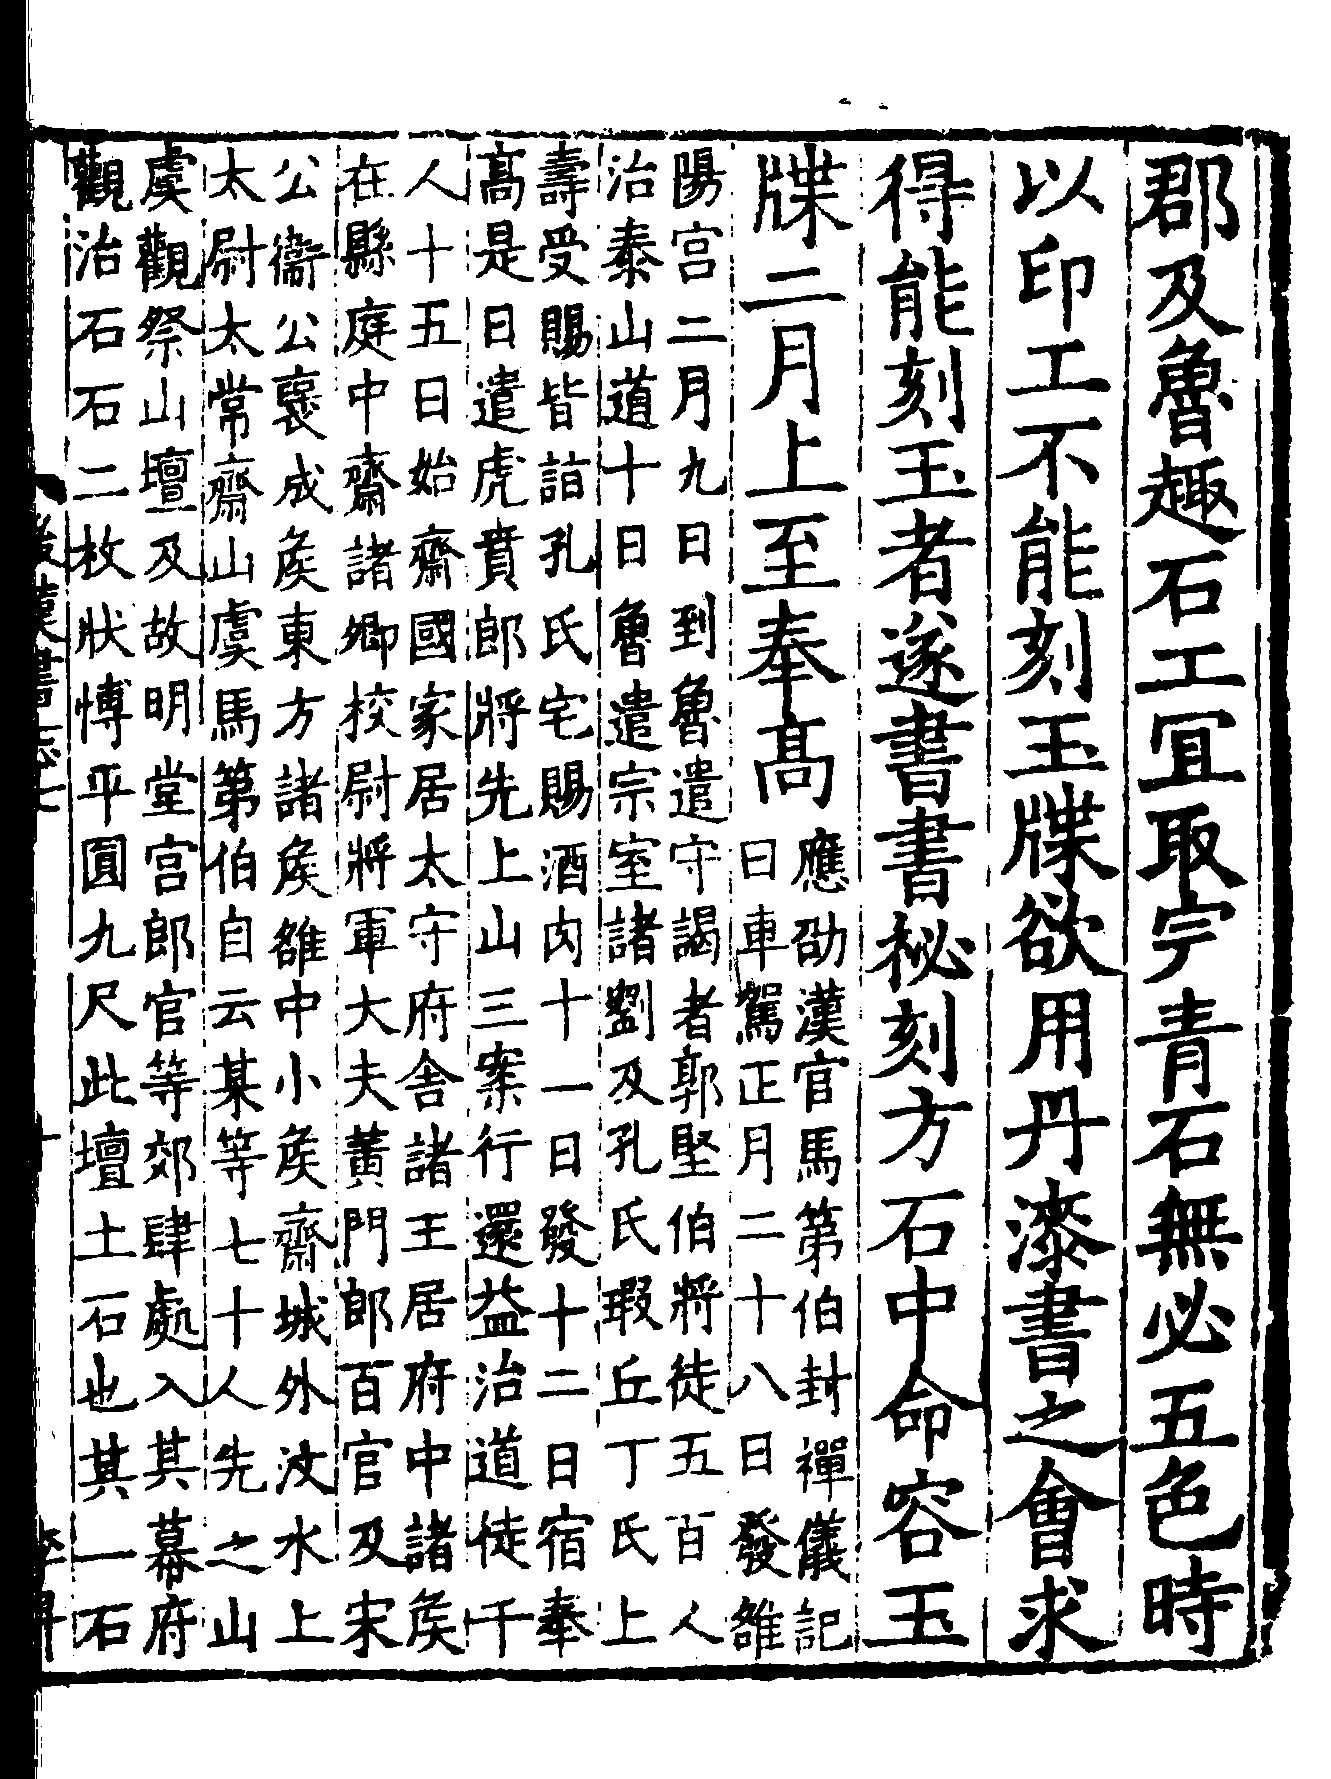 郡及魯趣石工宜取完青石無必五色時
以印工不能刻玉牒欲用丹漆書之會求
得能刻玉者遂書書祕刻方石中命容玉
牒二月上至奉高
應劭漢官馬第伯封禪儀記
曰車駕正月二十八日發雒
陽宮二月九日到魯遣守謁者郭堅伯將徒五百人
治泰山道十日魯遣宗室諸劉及孔氏瑕丘丁氏上
壽受賜皆詣孔氏宅賜酒肉十一日發十二日宿奉
高是日遣虎賁郎將先上山三案行還益治道徒千
人十五日始齋國家居太守府舍諸王居府中諸矦
在縣庭中齋諸卿校尉將軍大夫黃門郎百官及宋
公衞公襃成矦東方諸矦雒中小矦齋城外汶水上
太尉太常齋山虞馬第伯自云某等七十人先之山
虞觀祭山壇及故明堂宮郎官等郊肆處入其幕府
觀治石石二枚狀愽平圓九尺此壇土石也其一石
後漢書志七
十